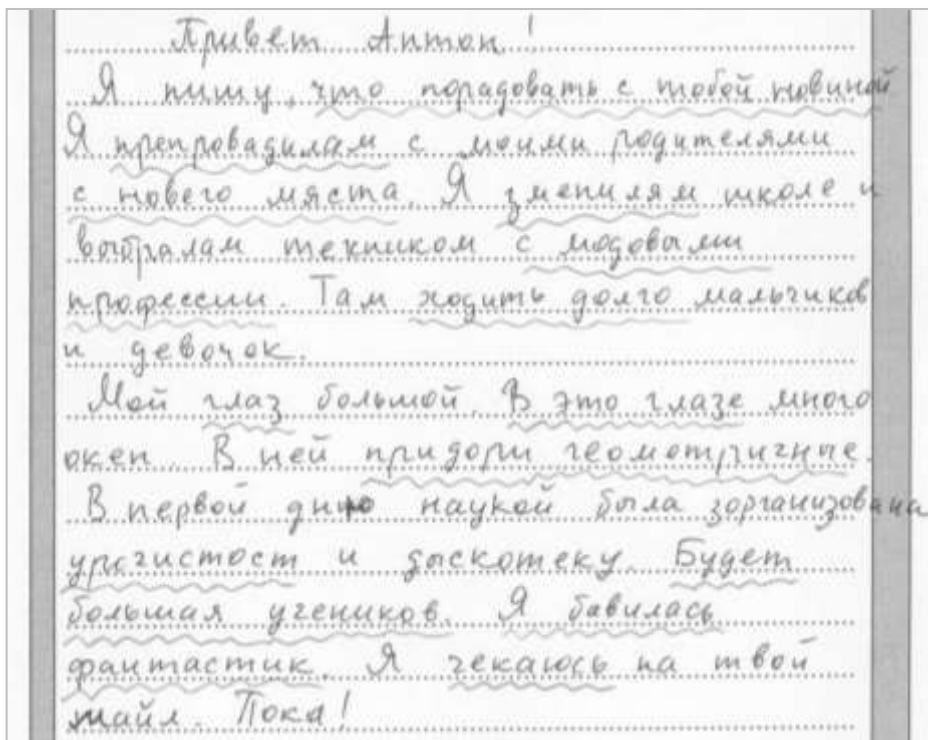 Привет Антон!
Я пишу, что порадовать с тобой новиной
Я препровадилам с моими родителями
с нового мяста. Я зменилям школе и
выбралам техником с модовыми
профессии. Там ходить долго мальчиков
и девочок.
Мой глаз большой. В это глазе много
окен. В ней придори геомотричные.
В первой дню наукой была зорганизована
урочистост и дыскотеку. Будет
большая учеников. Я бавилась
фантастик. Я чекаюсь на твой
майл. Пока!